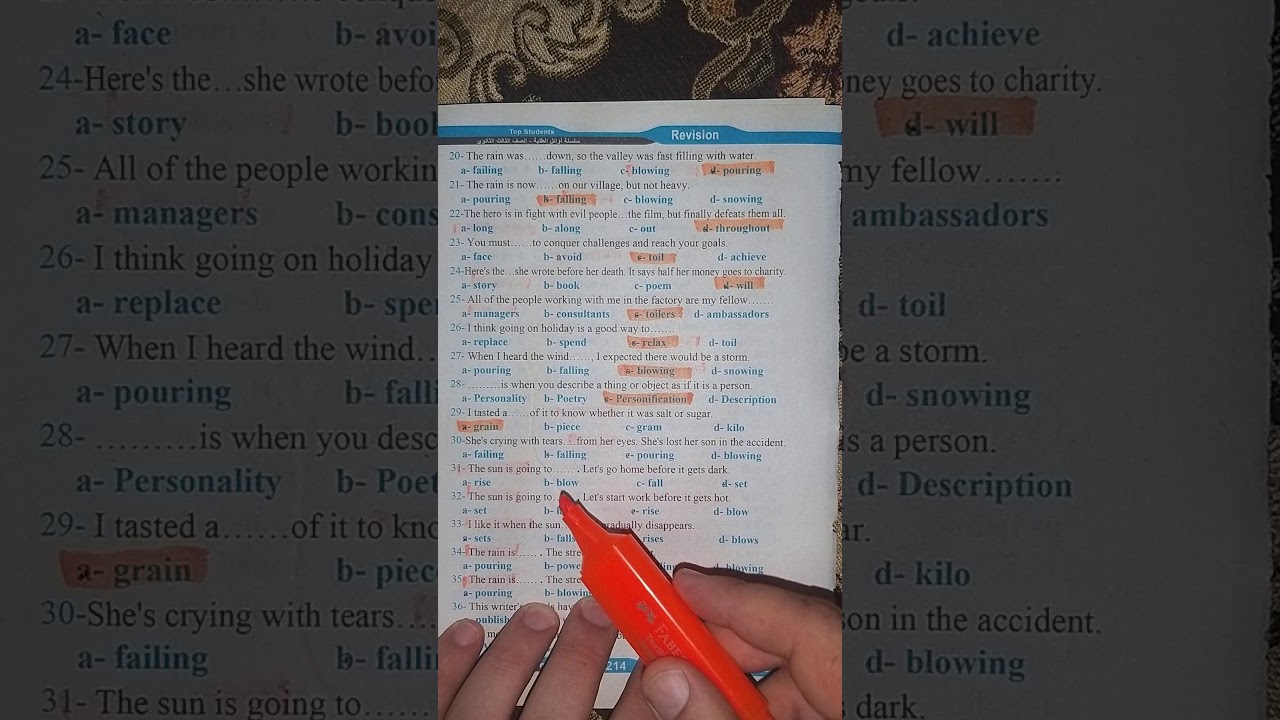 Top Students
Revision
سلسلة أوائل الطلبة - الصف الثالث الثانوى
20- The rain was……down, so the valley was fast filling with water.
a- failing b- falling c- blowing d- pouring
21- The rain is now……on our village, but not heavy.
a- pouring b- falling c- blowing d- snowing
22-The hero is in fight with evil people…the film, but finally defeats them all.
a- long b- along c- out d- throughout
23- You must……to conquer challenges and reach your goals.
a- face b- avoid c- toil d- achieve
24-Here's the…she wrote before her death. It says half her money goes to charity.
a- story b- book c- poem d- will
25- All of the people working with me in the factory are my fellow…….
a- managers b- consultants c- toilers d- ambassadors
26- I think going on holiday is a good way to…….
a- replace b- spend c- relax d- toil
27- When I heard the wind……, I expected there would be a storm.
a- pouring b- falling c- blowing d- snowing
28- ………is when you describe a thing or object as if it is a person.
a- Personality b- Poetry c- Personification d- Description
29- I tasted a……of it to know whether it was salt or sugar.
a- grain b- piece c- gram d- kilo
30-She's crying with tears…from her eyes. She's lost her son in the accident.
a- failing b- falling c- pouring d- blowing
31- The sun is going to…… . Let's go home before it gets dark.
a- rise b- blow c- fall d- set
32- The sun is going to…… . Let's start work before it gets hot.
a- set b- c- rise d- blow
33- I like it when the sun gradually disappears.
a- sets b- falls rises d- blows
34- The rain is…… . The
a- pouring b- d- blowing
35- The rain is…… . The
a- pouring b- blowing
36- This writer's
214